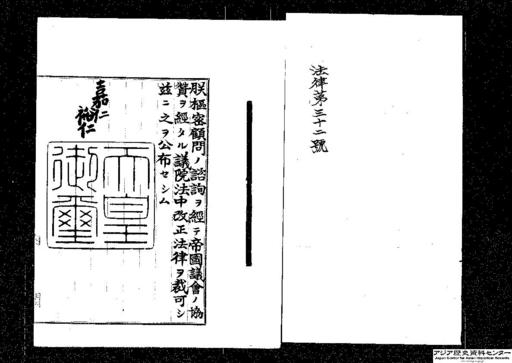 法律第三十二號
朕樞密顧問ノ諮詢ヲ經テ帝國議會ノ協
贊ヲ經タル議院法中改正法律ヲ裁可シ
玆ニ之ヲ公布セシム
嘉仁
裕仁
天皇
御璽
アジア歴史資料センター
Japan Center for Asian Historical Records